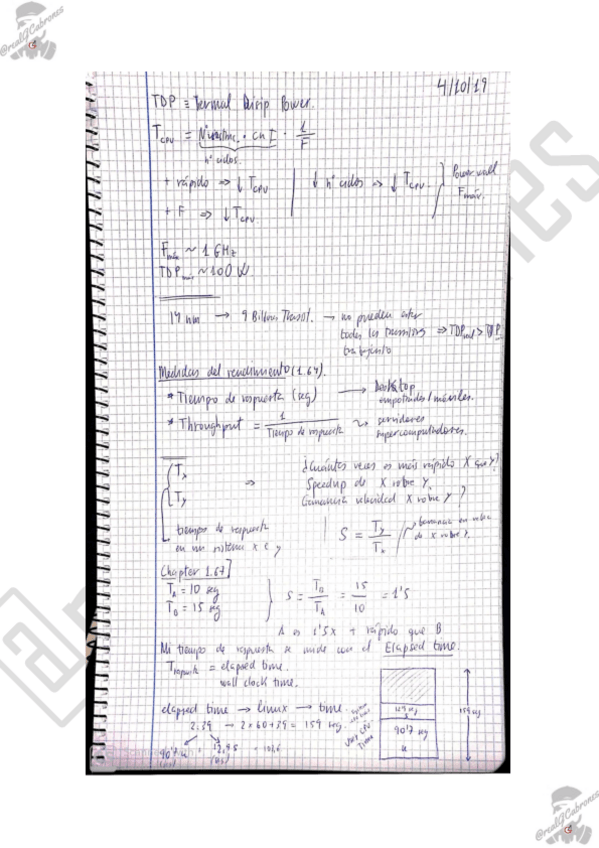 @realGCabrones
4/10/19
TDP ≡ Termal Disip Power.
T cpu = Nº instruc. · CPI · 1/F
nº ciclos.
+ rápido ⇒ ↓ T cpu | ↓ nº ciclos ⇒ ↓ T cpu } Power wall
+ F ⇒ ↓ T cpu Fmáx.
Fmáx ~ 1 GHz
TDP ~ 100 W
14 nm → 9 Billones Transist. → no pueden estar
todos los transistores ⇒ TDP real > TDP
trabajando
Medidas del rendimiento (1.64).
* Tiempo de respuesta (seg) → Desktop
empotrados / móviles.
* Throughput = 1 / Tiempo de respuesta ↝ servidores
supercomputadores.
Tx ⇒ ¿Cuántas veces es más rápido X que Y?
Speedup de X sobre Y.
Ty Ganancia velocidad X sobre Y?
tiempo de respuesta
en un sistema x e y
S = Ty / Tx → Ganancia en veloc.
de X sobre Y.
Chapter 1.67]
TA = 10 seg
TB = 15 seg
S = TB / TA = 15 / 10 = 1'5
A es 1'5x + rápido que B
Mi tiempo de respuesta se mide con el Elapsed time.
T respuesta = elapsed time.
wall clock time.
elapsed time → linux → time.
2:39 → 2 x 60 + 39 = 159 seg.
90'7 u 12,9 s
User CPU
Time
90'7 seg
u
159 seg
@realGCabrones